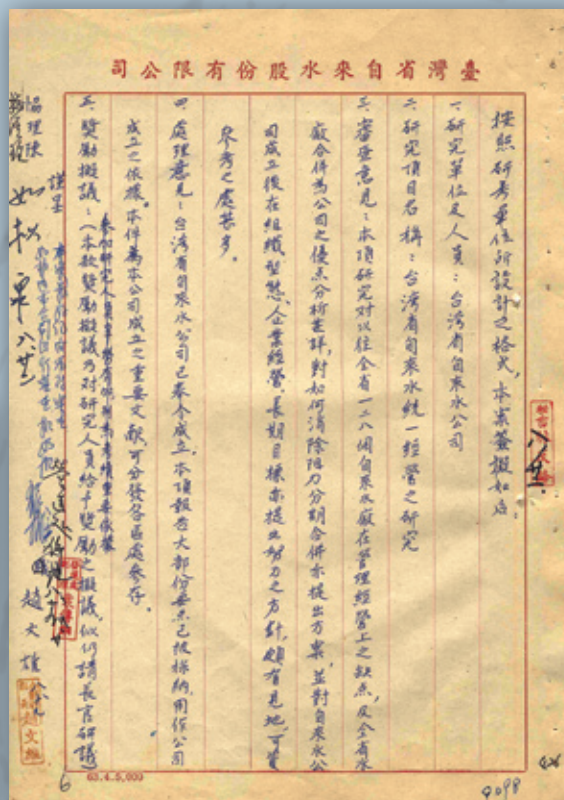 臺灣省自來水股份有限公司
按照研考單位所設計之格式,本案簽擬如后:
一、研究單位及人員:台灣省自來水公司
二、研究項目名稱:台灣省自來水統一經營之研究
三、審查意見:本項研究對以往全省一二八個自來水廠在管理經營上之缺点,及全省水
廠合併為公司之優点分析甚詳,對如何消除阻力分期合併亦提出方案,並對自來水公
司成立後在組織型態、企業經營、長期目標亦提出努力之方針,頗有見地,可資
參考之處甚多。
四、處理意見:台灣省自來水公司已奉令成立,本項報告大部份要点已被採納,用作公司
成立之依據。本件為本公司成立之重要文獻,可分發各區處參存。
五、獎勵擬議:(本款獎勵擬議乃對研究人員給予獎勵之擬議,似仍請長官研議)
謹呈
協理陳
如擬
八、廿二
趙文雄
八、廿二
63.4.5,000
6
9098